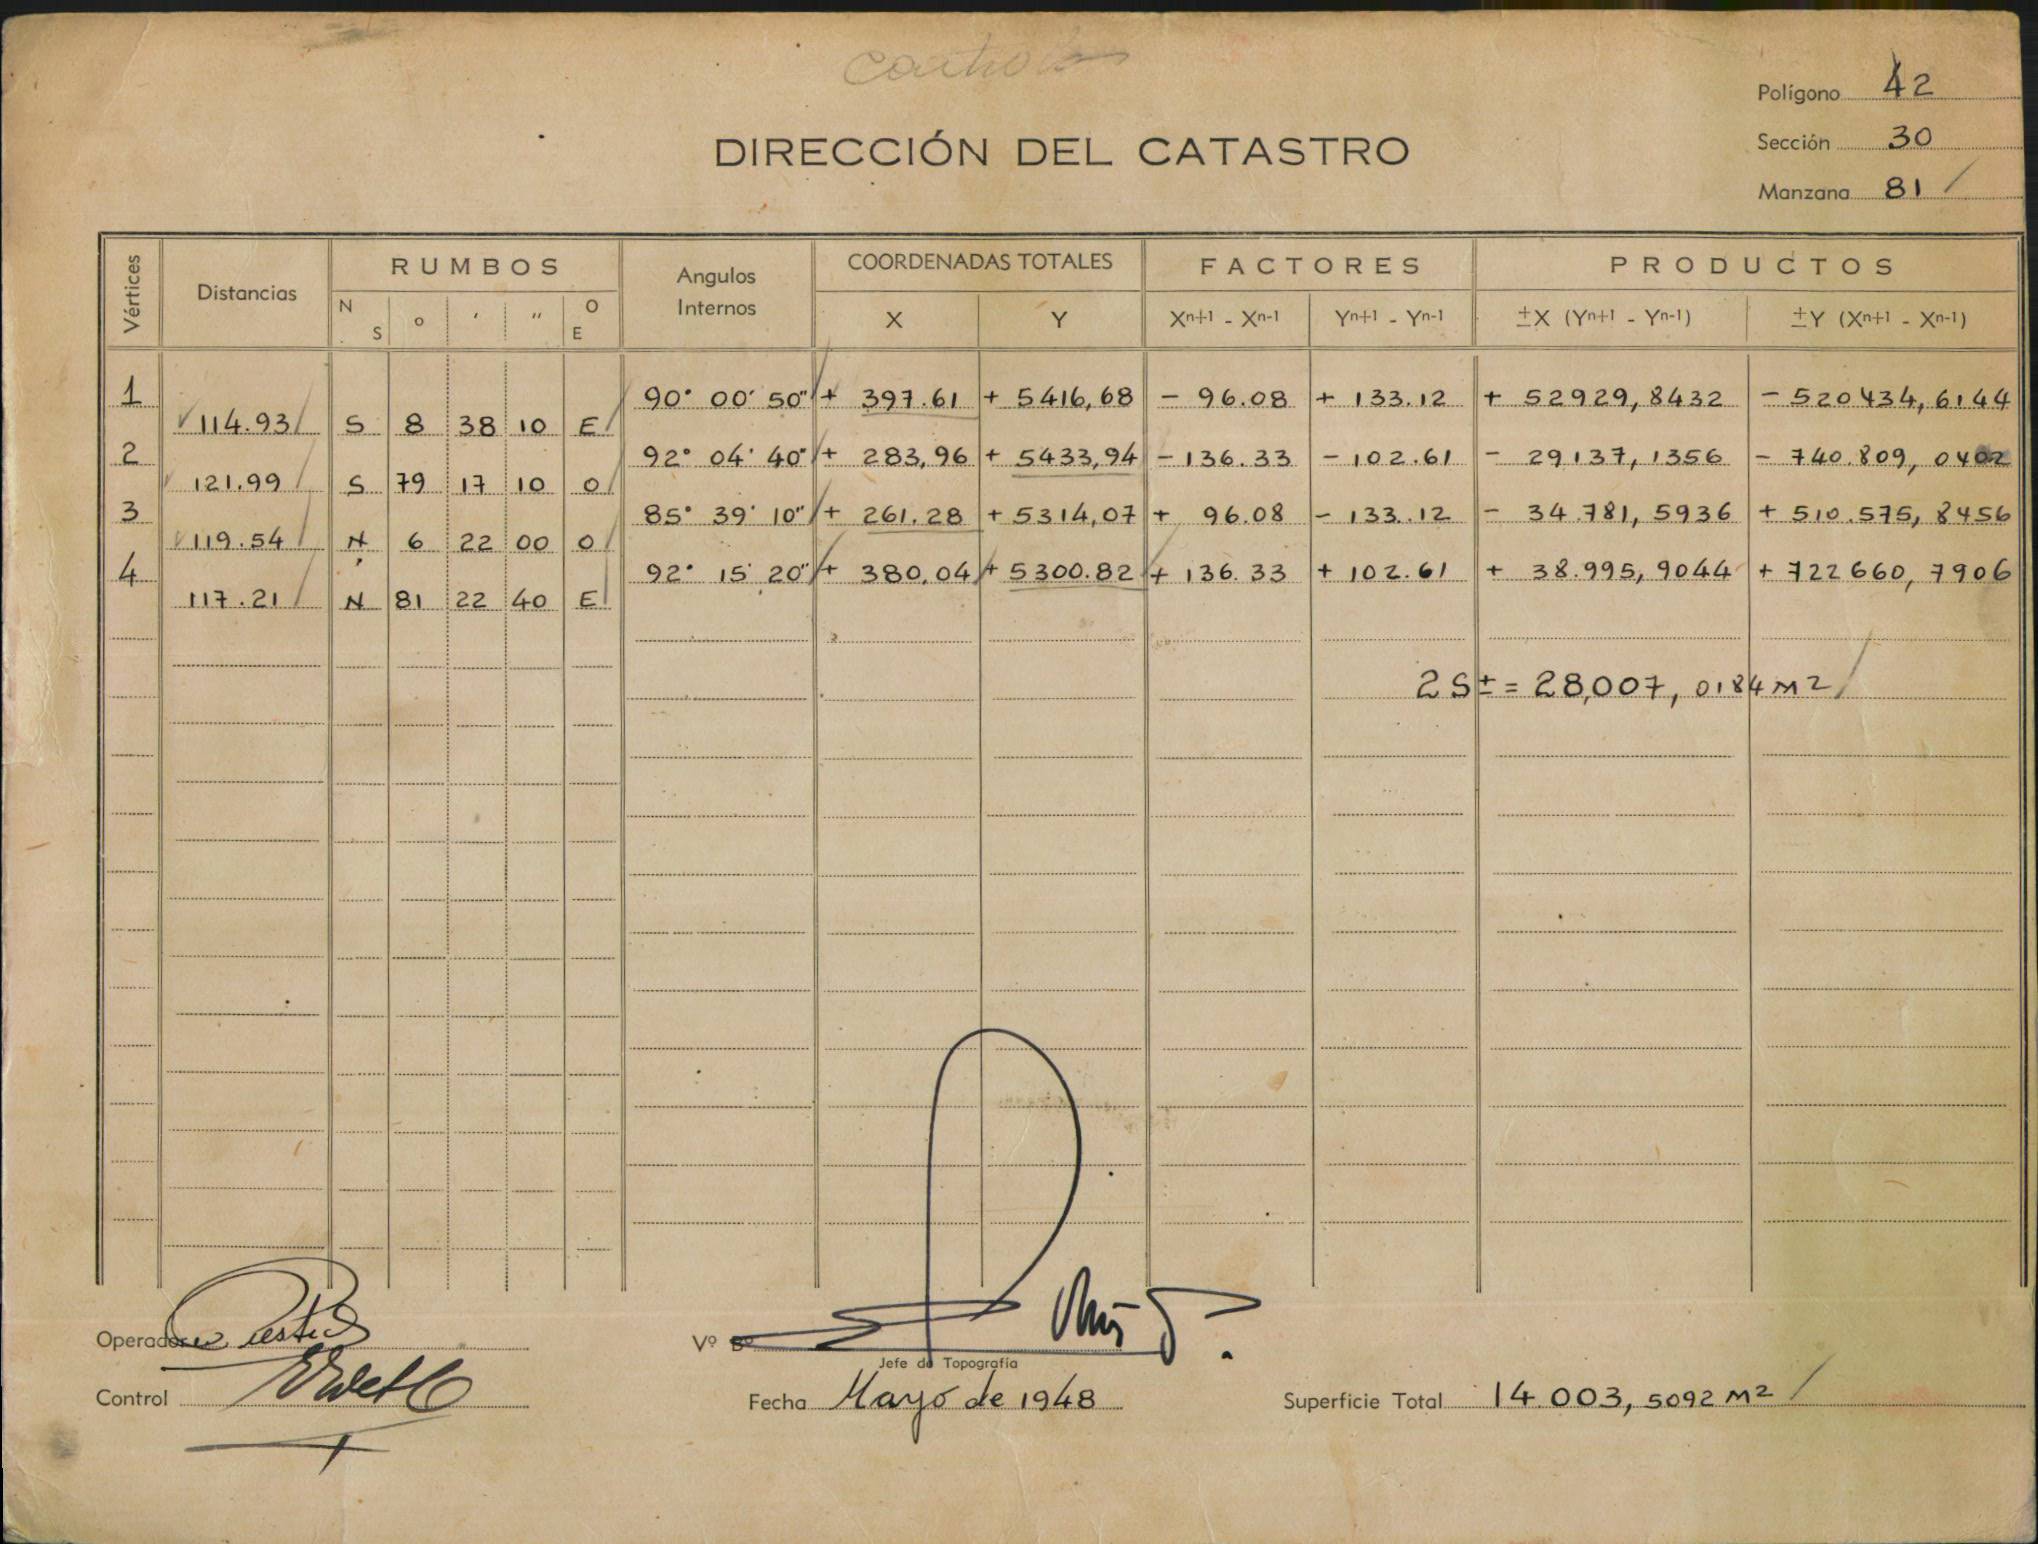 Controlo
Polígono 42
DIRECCIÓN DEL CATASTRO
Sección 30
Manzana 81
Vértices Distancias RUMBOS Angulos Internos COORDENADAS TOTALES FACTORES PRODUCTOS
N S ° ' " O E X Y Xn+1 - Xn-1 Yn+1 - Yn-1 ±X (Yn+1 - Yn-1) ±Y (Xn+1 - Xn-1)
1 90° 00' 50" + 397.61 + 5416,68 - 96.08 + 133.12 + 52929,8432 - 520434,6144
114.93 S 8 38 10 E
2 92° 04' 40" + 283,96 + 5433,94 - 136.33 - 102.61 - 29137,1356 - 740.809,0402
121.99 S 79 17 10 O
3 85° 39' 10" + 261.28 + 5314,07 + 96.08 - 133.12 - 34.781,5936 + 510.575,8456
119.54 N 6 22 00 O
4 92° 15' 20" + 380,04 + 5300.82 + 136.33 + 102.61 + 38.995,9044 + 722660,7906
117.21 N 81 22 40 E
2S± = 28,007,0184 M2
Operador
Vº Bº
Jefe de Topografía
Control
Fecha Mayo de 1948
Superficie Total 14.003,5092 M2